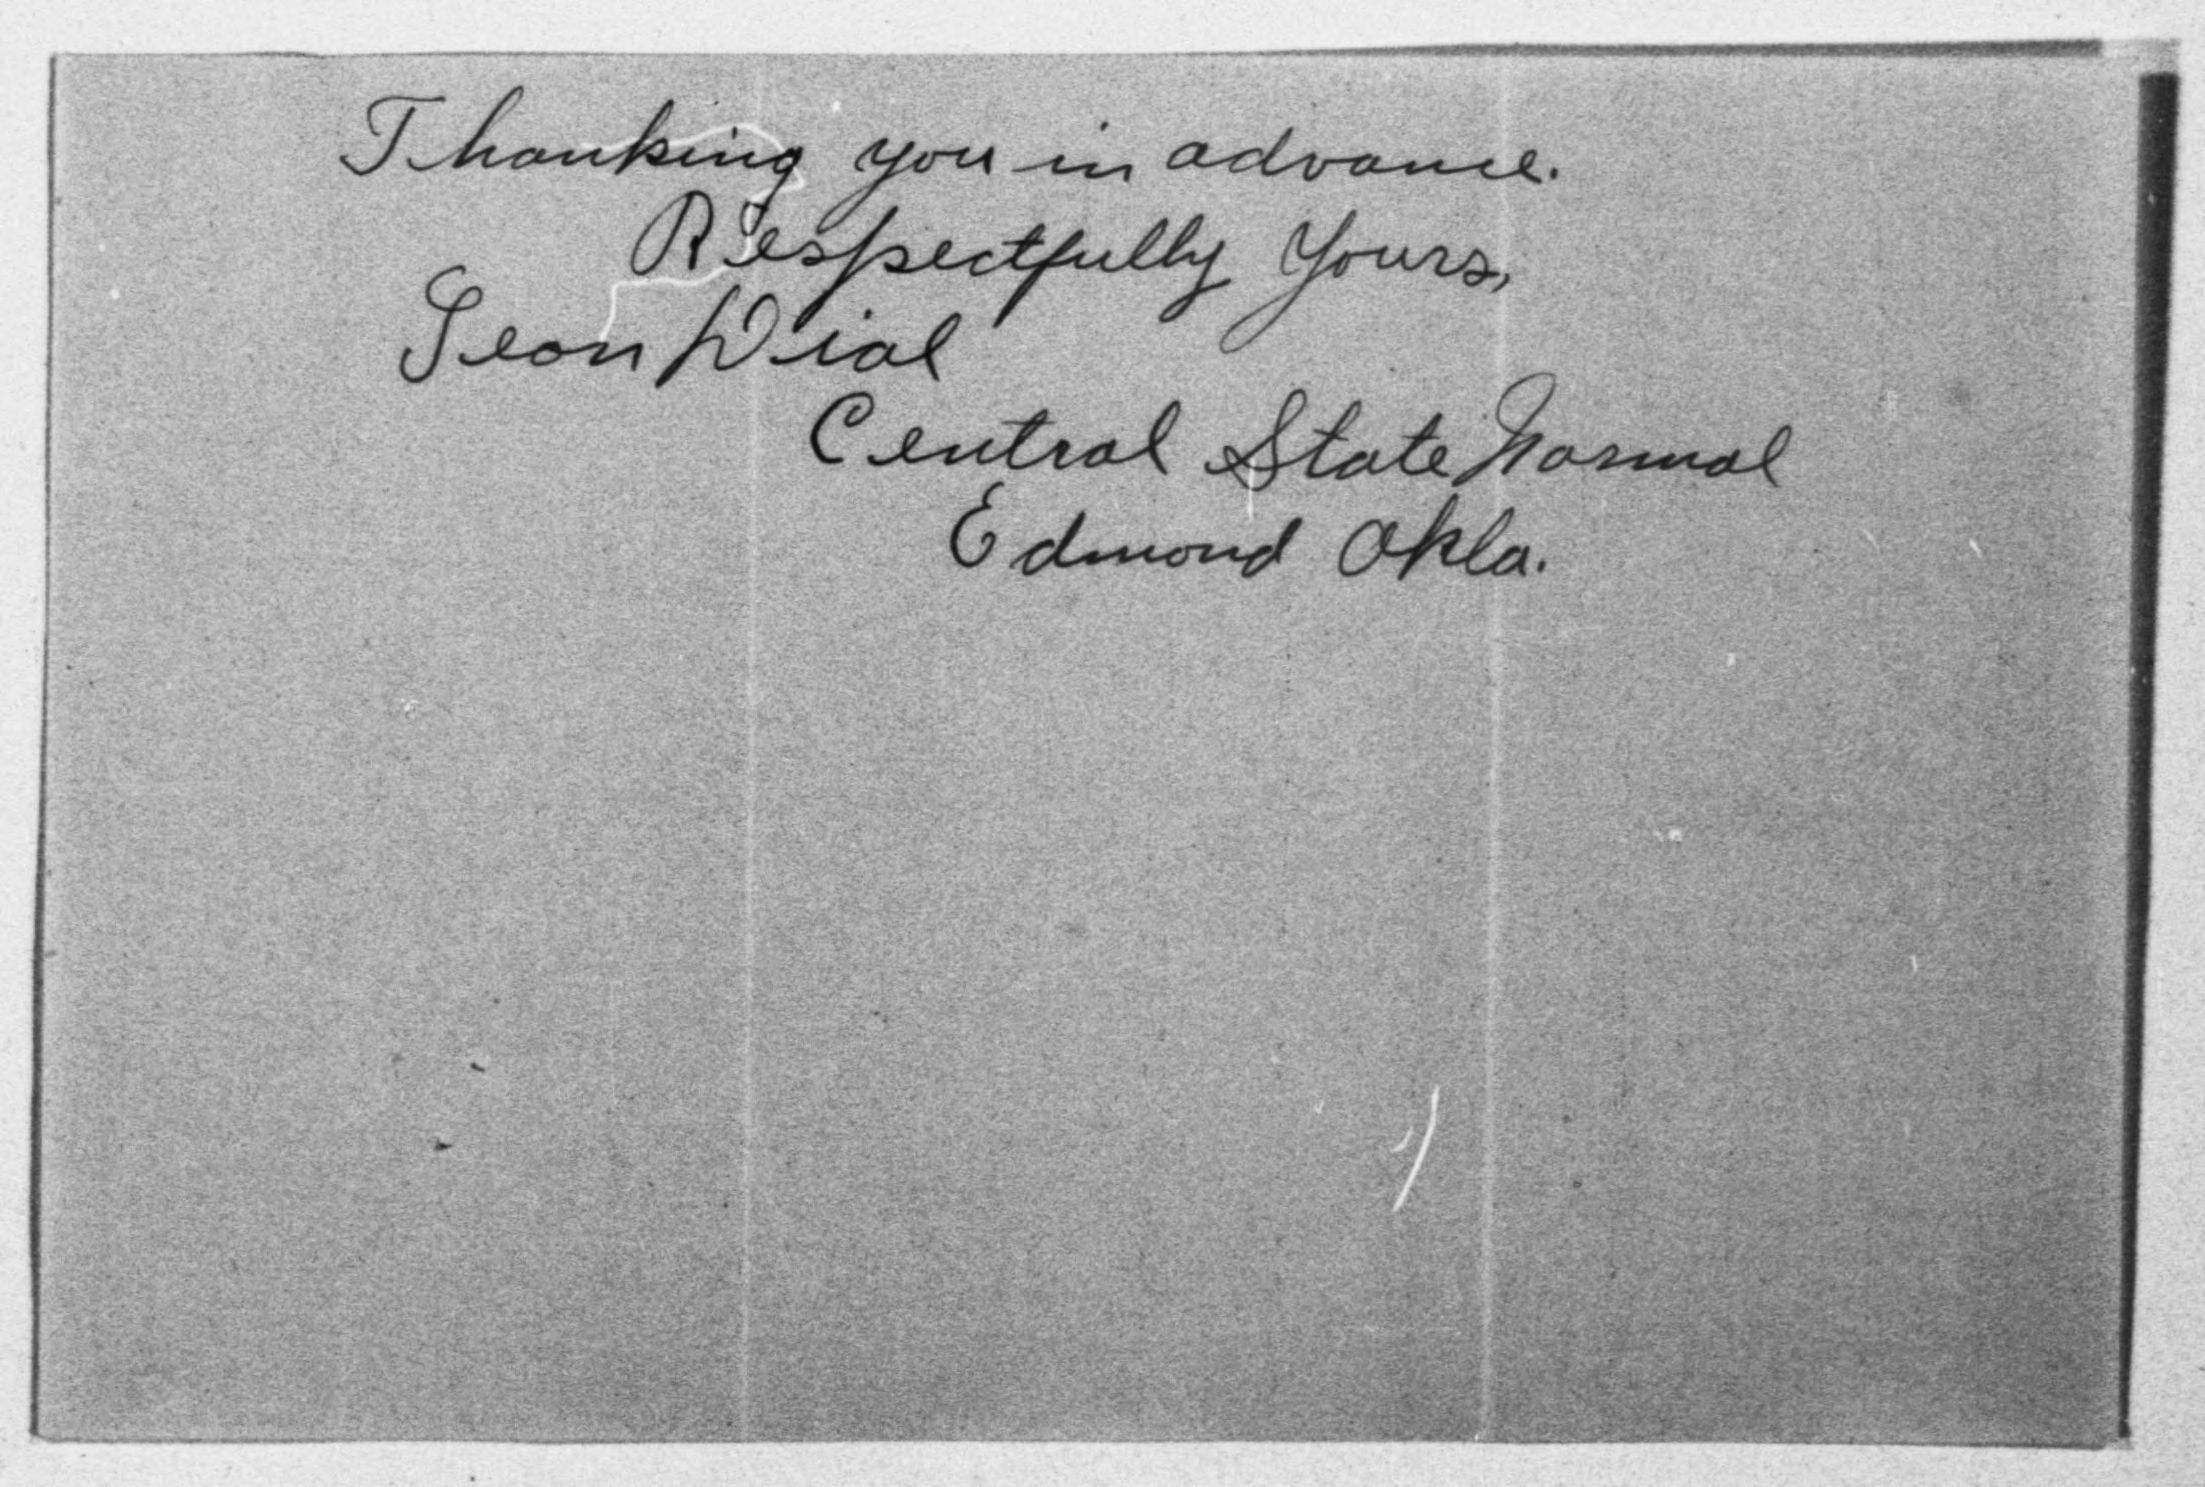 Thanking you in advance.
Respectfully Yours,
Leon Dial
Central State Normal
Edmond Okla.